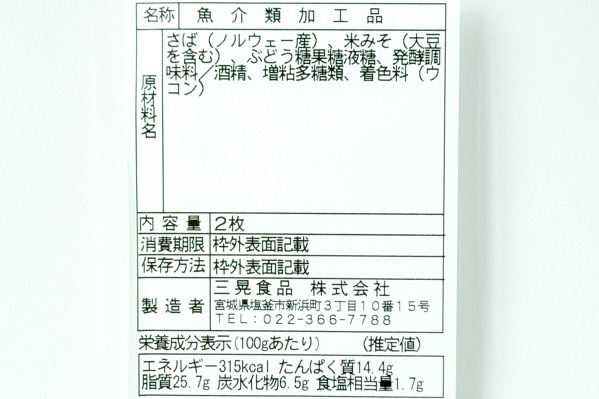 名称 魚介類加工品
原材料名
さば（ノルウェー産）、米みそ（大豆
を含む）、ぶどう糖果糖液糖、発酵調
味料／酒精、増粘多糖類、着色料（ウ
コン）
内容量 2枚
消費期限 枠外表面記載
保存方法 枠外表面記載
製造者
三晃食品 株式会社
宮城県塩釜市新浜町3丁目10番15号
TEL：022-366-7788
栄養成分表示(100gあたり) （推定値）
エネルギー315kcal たんぱく質14.4g
脂質25.7g 炭水化物6.5g 食塩相当量1.7g